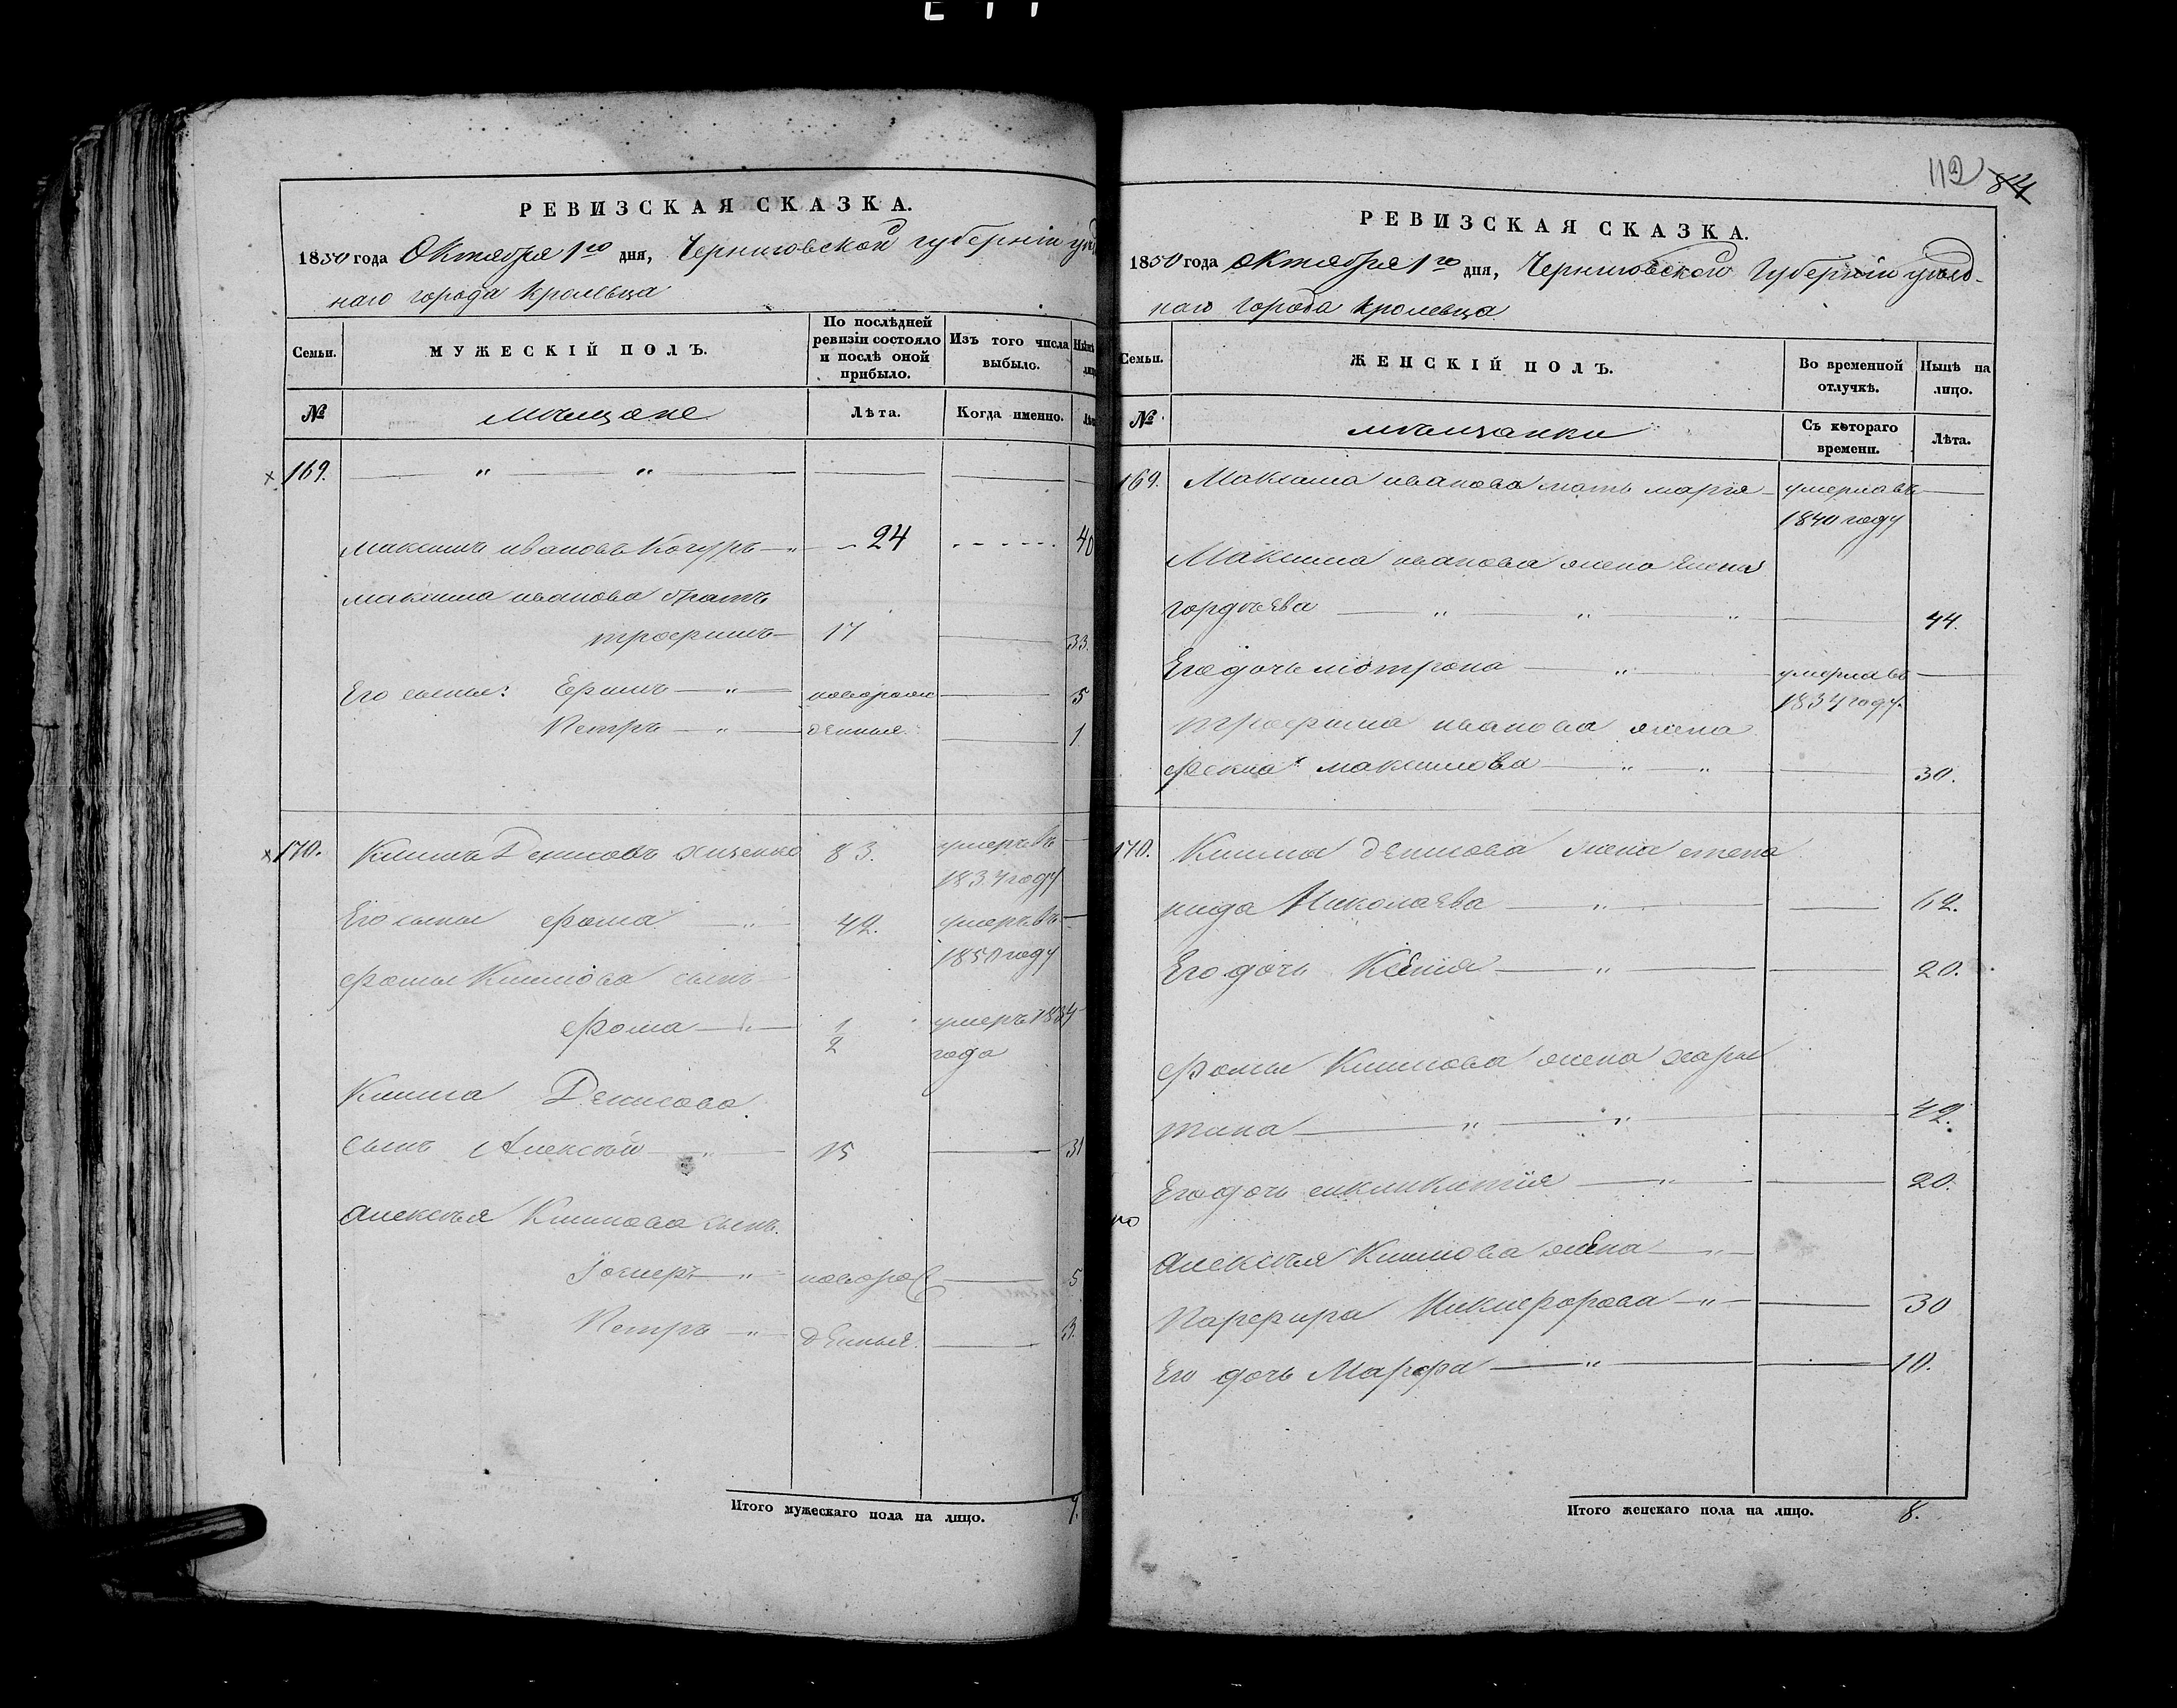 112 84
РЕВИЗСКАЯ СКАЗКА.
1850 года Октября 1го дня, Черниговской губернiи уѣзд
наго города Кролевца
Семьи.
МУЖЕСКIЙ ПОЛЪ.
По послѣдней ревизiи состояло и послѣ оной прибыло.
Изъ того числа выбыло.
№
мѣщане
Лѣта.
Когда именно.
169.
Максимъ ивановъ Кочуръ 24 40
максима иванова братъ
трофимъ 17 33.
Его сыны: Ефимъ новорож 5
Петръ денныя 1
170. Климъ Денисовъ 83. умеръ въ
1837 году
Его сынъ фома 42. умеръ въ
1850 году
фомы Климова сынъ
фома 1/2 умеръ 1834
года
Клима Денисова
сынъ Алексѣй 15 31
алексѣя Климова сынъ
новорож 5
Петръ денныя 3.
Итого мужескаго пола на лицо. 7.
РЕВИЗСКАЯ СКАЗКА.
1850 года октября 1го дня, Черниговской Губернiи уѣзд-
наго города Кролевца
Семьи.
ЖЕНСКIЙ ПОЛЪ.
Во временной отлучкѣ.
Нынѣ на лицо.
№
мѣщанки
Съ котораго времени.
Лѣта.
169. Максима иванова мать марья умерла въ
1840 году
Максима иванова жена Елена
гордѣева 44.
Его дочь мотрона умерла въ
1837 году.
трофима иванова жена
фекла максимова 30.
170. Клима денисова жена степа
нида Николаева 62.
Его дочь Ксенiя 20.
фомы Климова жена хари
тина 42.
Его дочь 20.
алексѣя Климова жена
Парфира Никифорова 30
Его дочь Марфа 10.
Итого женскаго пола на лицо. 8.